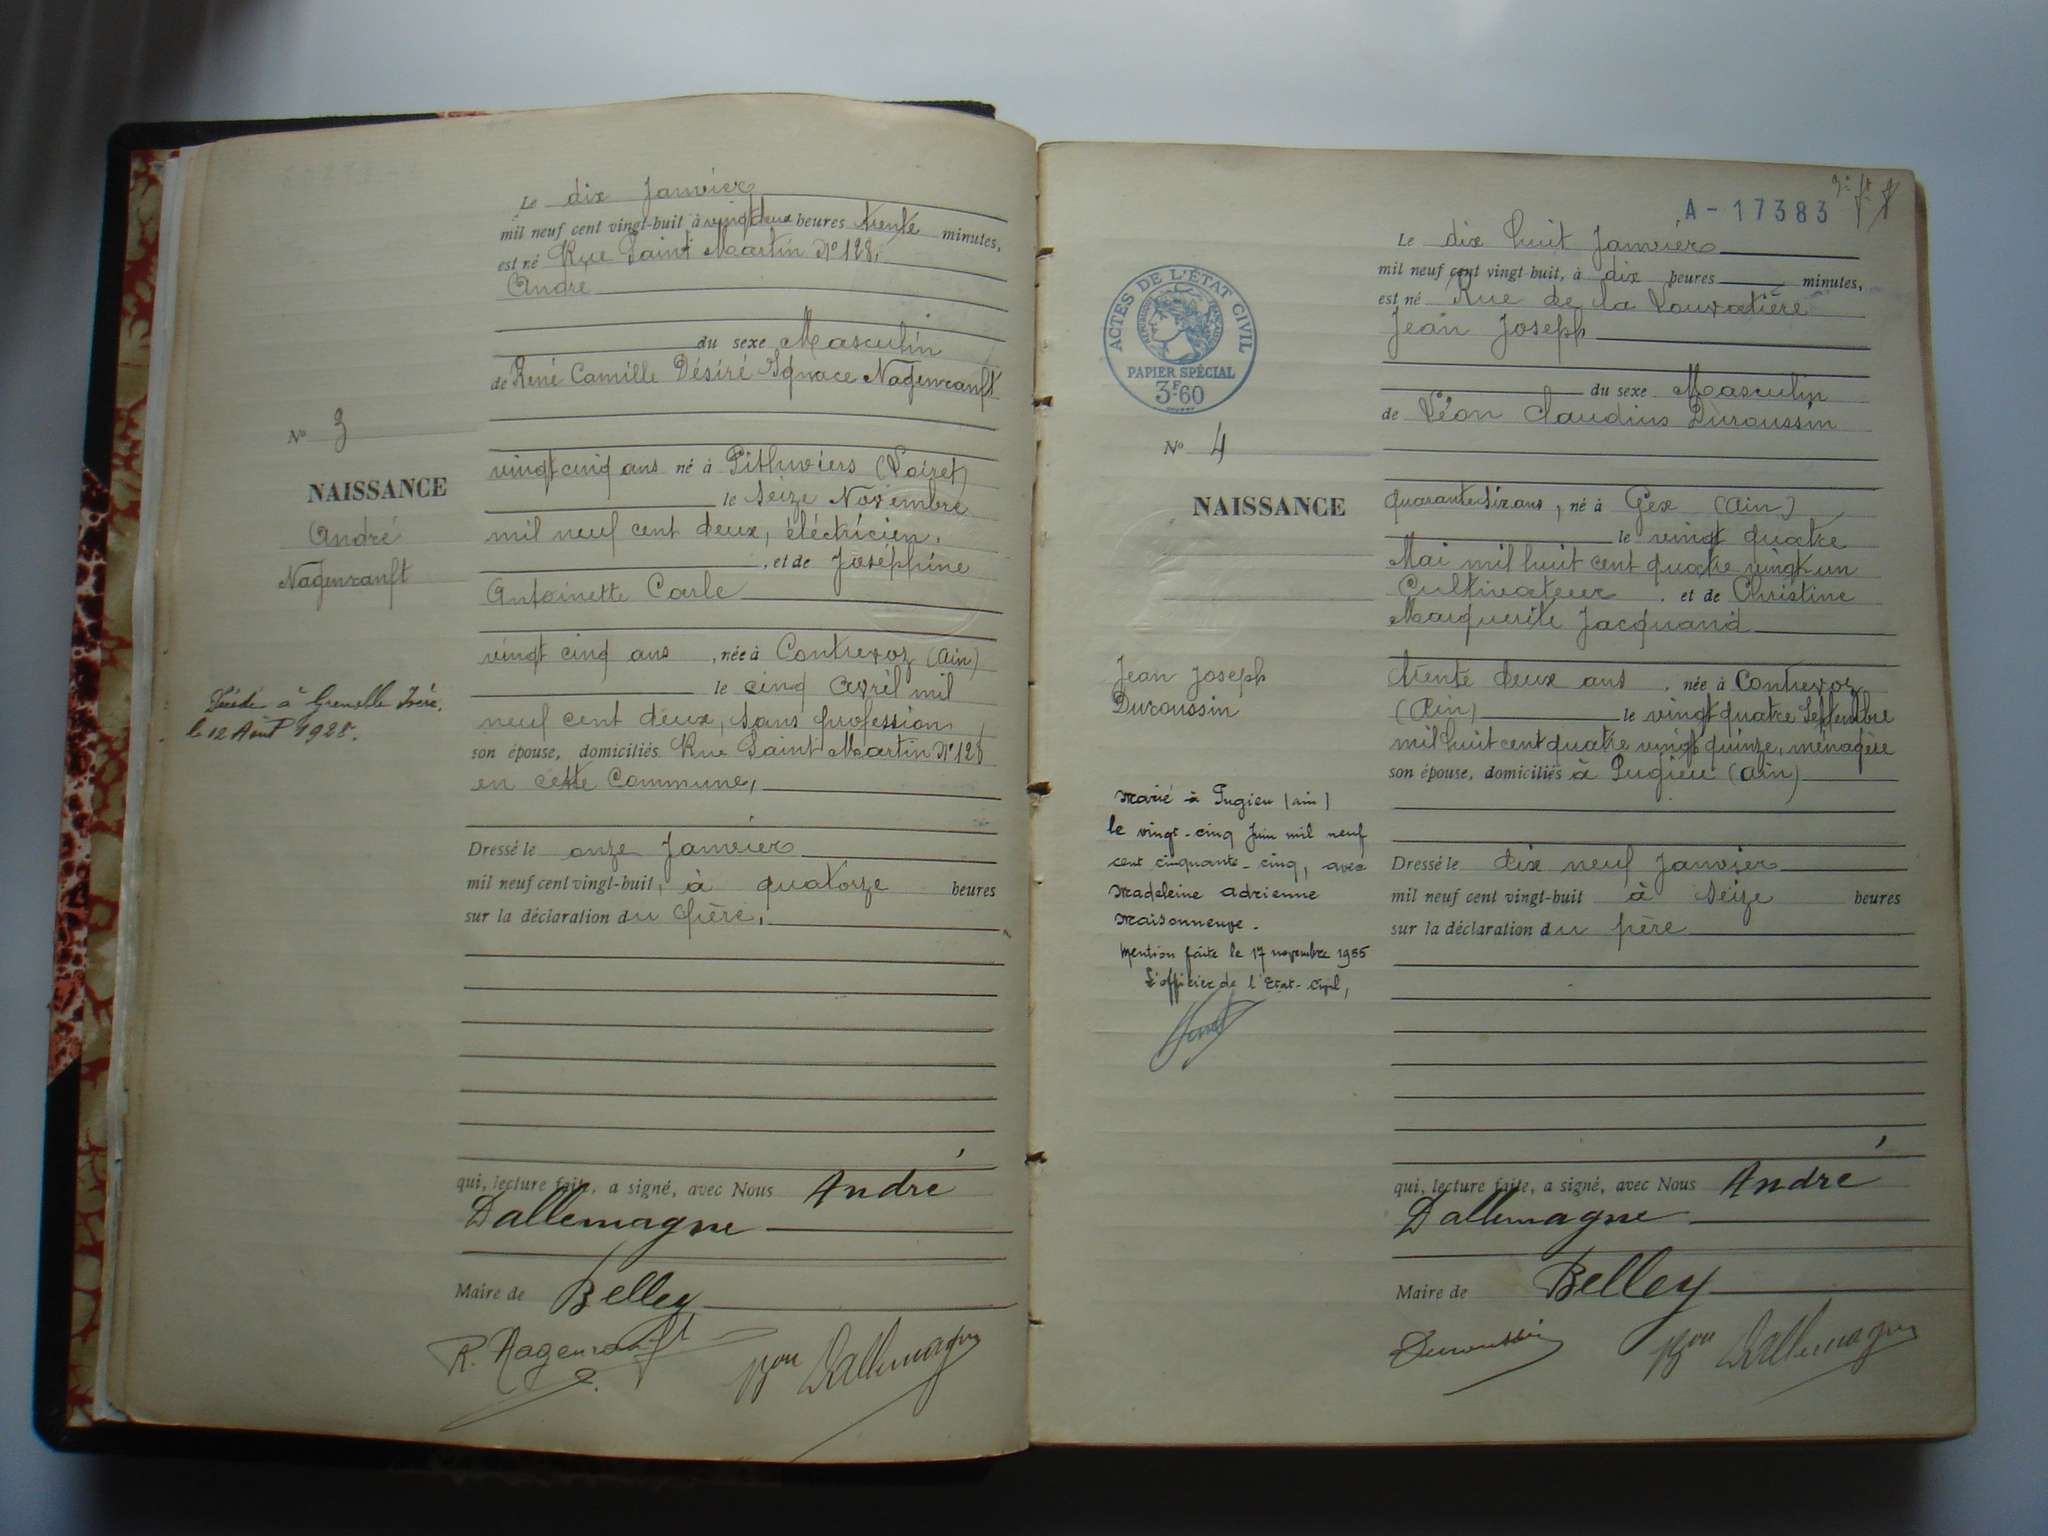 Le dix Janvier
mil neuf cent vingt-huit à vingt deux heures trente minutes,
est né Rue Saint Martin N° 128,
André
du sexe Masculin
de René Camille Désiré Ignace Nagenranft
N° 3
NAISSANCE
André
Nagenranft
vingt cinq ans né à Pithiviers (Loiret)
le seize Novembre
mil neuf cent deux, électricien,
, et de Joséphine
Antoinette Carle
vingt cinq ans , née à Contrevoz (Ain)
le cinq avril mil
neuf cent deux, sans profession,
son épouse, domiciliés Rue Saint Martin N° 128
en cette Commune,
à Grenoble Isère,
le 12 Août
Dressé le onze Janvier
mil neuf cent vingt-huit, à quatorze heures
sur la déclaration du père,
qui, lecture faite, a signé, avec Nous André
Dallemagne
Maire de Belley
R. Nagenranft
Bon Dallemagne
A-17383
Le dix huit Janvier
mil neuf cent vingt-huit, à dix heures minutes,
est né Rue de la
Jean Joseph
du sexe Masculin
de Léon Claudius Duroussin
ACTES DE L'ÉTAT CIVIL
PAPIER SPÉCIAL
3F60
N° 4
NAISSANCE
Jean Joseph
Duroussin
quarante six ans, né à Gex (Ain)
le vingt quatre
Mai mil huit cent quatre vingt un
Cultivateur , et de Christine
Marguerite Jacquand
trente deux ans , née à Contrevoz
(Ain) le vingt quatre Septembre
mil huit cent quatre vingt quinze, ménagère
son épouse, domiciliés à Pugieu (Ain)
Marié à Pugieu (ain)
le vingt-cinq Juin mil neuf
cent cinquante-cinq, avec
Madeleine Adrienne
Maisonneuve.
Mention faite le 17 novembre 1955
L'officier de l'Etat-Civil,
Dressé le dix neuf Janvier
mil neuf cent vingt-huit à seize heures
sur la déclaration du père
qui, lecture faite, a signé, avec Nous André
Dallemagne
Maire de Belley
Duroussin
Bon Dallemagne